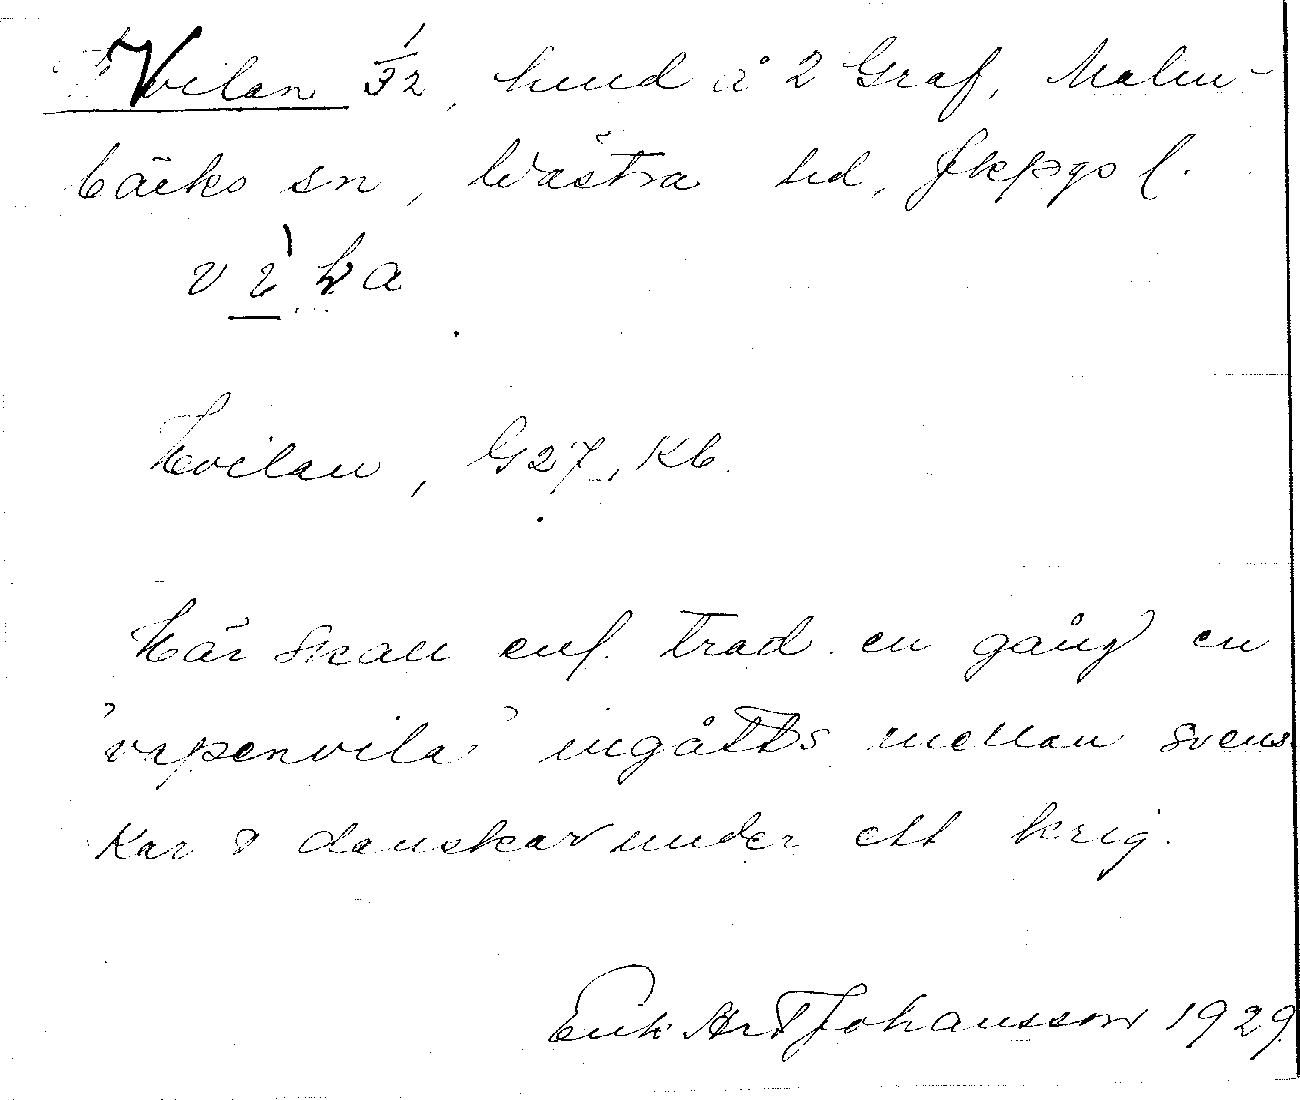 Vilan 1/32, hmd å 2 Graf, Malm-
bäcks sn, Västra hd, Jkpgs l.
Hvilan, G27, Kb.
Här skall enl. trad. en gång en
'vapenvila' ingåtts mellan svens-
kar & danskar under ett krig.
Erik Art Johansson 1929.